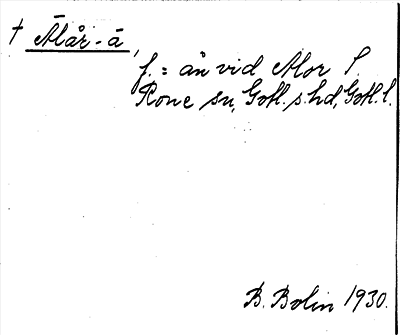 † Ålår-å,
f. = ån vid Alor l.
Rone sn, Gotl. s. hd, Gotl. l.
B. Bolin 1930.